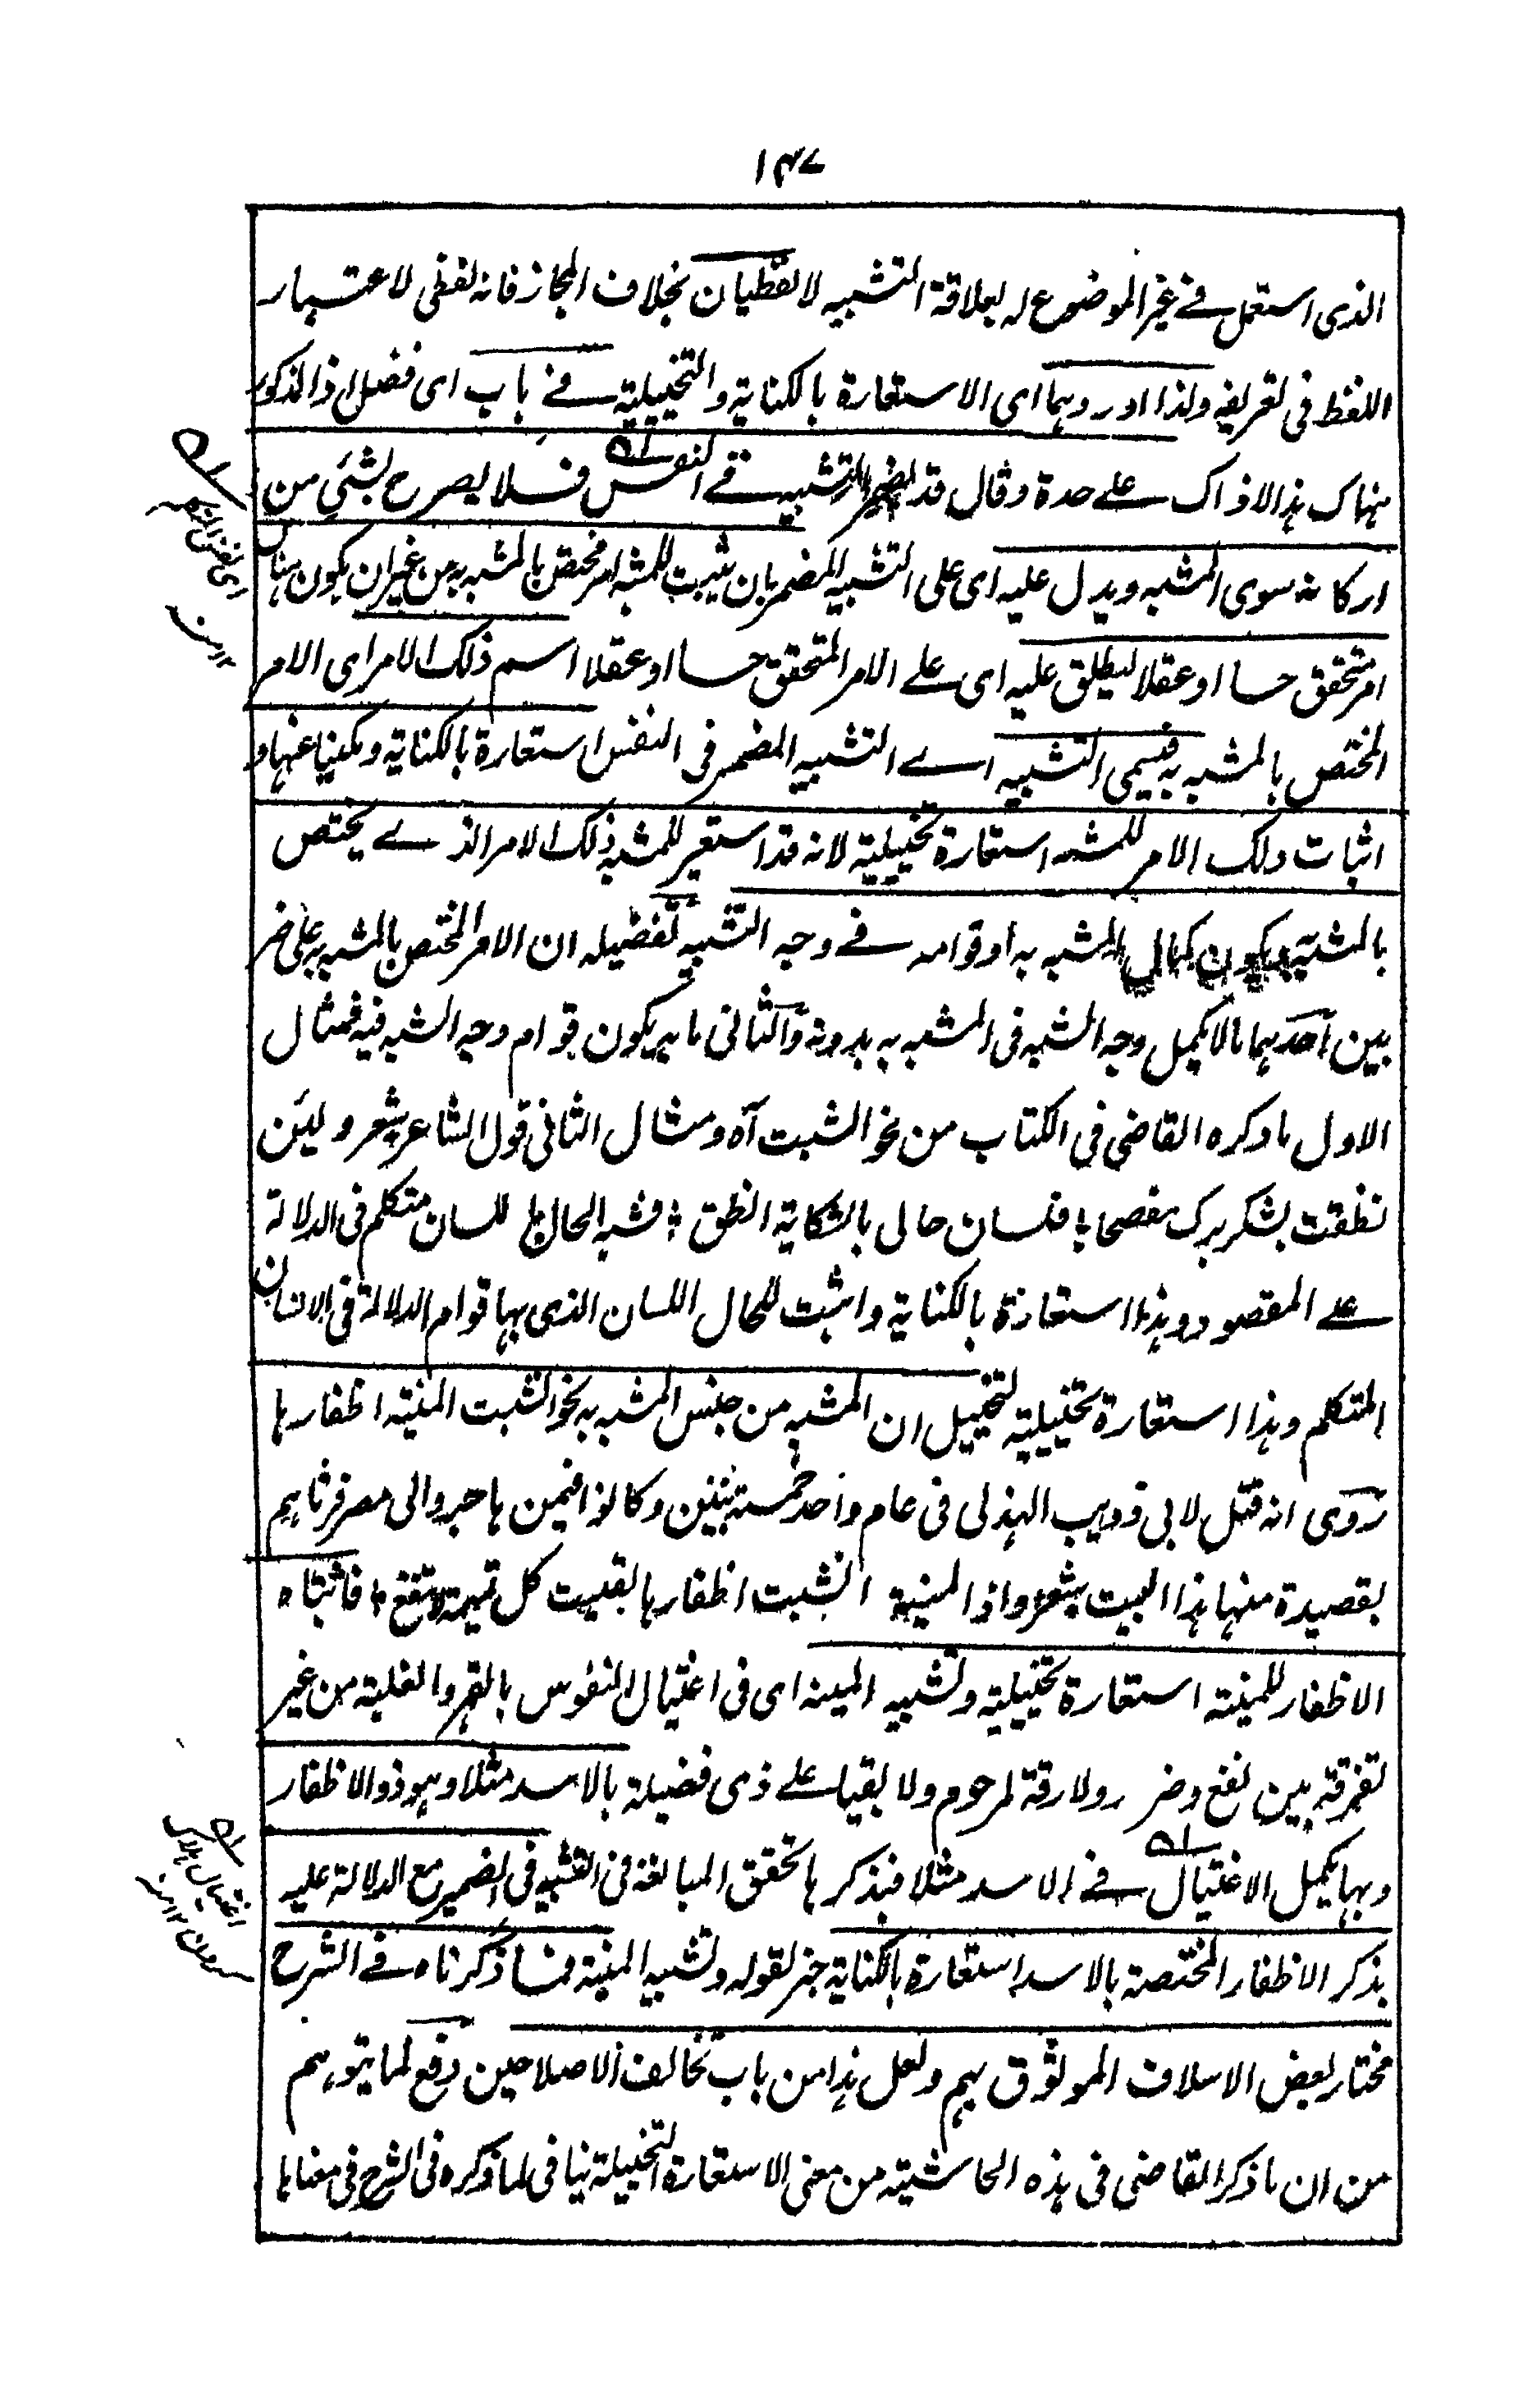 ۱۴۷
الذی استعمل فے غیر الموضوع لہ لعلاقۃ التشبیہ لا لفظیان بخلاف المجاز فانہ لفظی لاعتبار
اللفظ فی تعریفہ ولذا اوردہما ای الاستعارۃ بالکنایۃ والتخییلیۃ فے باب ای فصل اذ المذکور
ہناک ہذا لا ذاک علے حدۃ وقال قد یضمر التشبیہ فے النفس فلا یصرح بشئی من
ارکانہ سوی المشبہ ویدل علیہ ای علی التشبیہ المضمر بان یثبت للمشبہ امر مختص بالمشبہ بہ من غیر ان یکون ہناک
امر متحقق حسا او عقلا لیطلق علیہ ای علے الامر المتحقق حسا او عقلا اسم ذلک الامر ای الامر
المختص بالمشبہ بہ فیسمی التشبیہ اے التشبیہ المضمر فی النفس استعارۃ بالکنایۃ ومکنیا عنہا و
اثبات ذلک الامر للمشبہ استعارۃ تخییلیۃ لانہ قد استعیر للمشبہ ذلک الامر الذے یختص
بالمشبہ بہ ویکون کمال المشبہ بہ او قوامہ فے وجہ التشبیہ تفصیلہ ان الامر المختص بالمشبہ بہ علی ضر
بین احدہما مالا یکمل وجہ الشبہ فی المشبہ بہ بدونہ والثانی ما بہ یکون قوام وجہ الشبہ فیہ فمثال
الاول ما ذکرہ القاضی فی الکتاب من نحو انشبت آہ ومثال الثانی قول الشاعر شعر ولئن
نطقت بشکر برک مفصحا ٭ فلسان حالی بالشکایۃ انطق ٭ فشبہ الحال بلسان متکلم فی الدلالۃ
علے المقصود وہذا استعارۃ بالکنایۃ واثبت للحال اللسان الذی بہا قوام الدلالۃ فی الانسان
المتکلم وہذا استعارۃ تخییلیۃ لتخییل ان المشبہ من جنس المشبہ بہ نحو انشبت المنیۃ اظفارہا
روی انہ قتل لابی ذویب الہذلی فی عام واحد خمسۃ بنین وکانوا فیمن ہاجروا الی مصر فرثاہم
بقصیدۃ منہا ہذا البیت شعر واذا المنیۃ انشبت اظفارہا ٭ الفیت کل تمیمۃ لا تنفع ٭ فاثبات
الاظفار للمنیۃ استعارۃ تخییلیۃ وتشبیہ المنیۃ ای فی اغتیال النفوس بالقہر والغلبۃ من غیر
تفرقۃ بین نفع وضر ولا رقۃ لمرحوم ولا بقیا علے ذی فضیلۃ بالاسد مثلا وہو ذو الاظفار
وبہا یکمل الاغتیال فے الاسد مثلا فبذکرہا تحقق المبالغۃ فی التشبیہ فی الضمیر مع الدلالۃ علیہ
بذکر الاظفار المختصۃ بالاسد استعارۃ بالکنایۃ خبر لقولہ وتشبیہ المنیۃ فما ذکرناہ فے الشرح
مختار بعض الاسلاف الموثوق بہم ولعل ہذا من باب تخالف الاصلاحین دفع لما یتوہم
من ان ما ذکر القاضی فی ہذہ الحاشیۃ من معنی الاستعارۃ التخییلیۃ ینافی لما ذکرہ فی الشرح فی معناہا
ای نفس المتکلم
۱۲ منہ
اغتیال ہلاک
۱۲ منہ